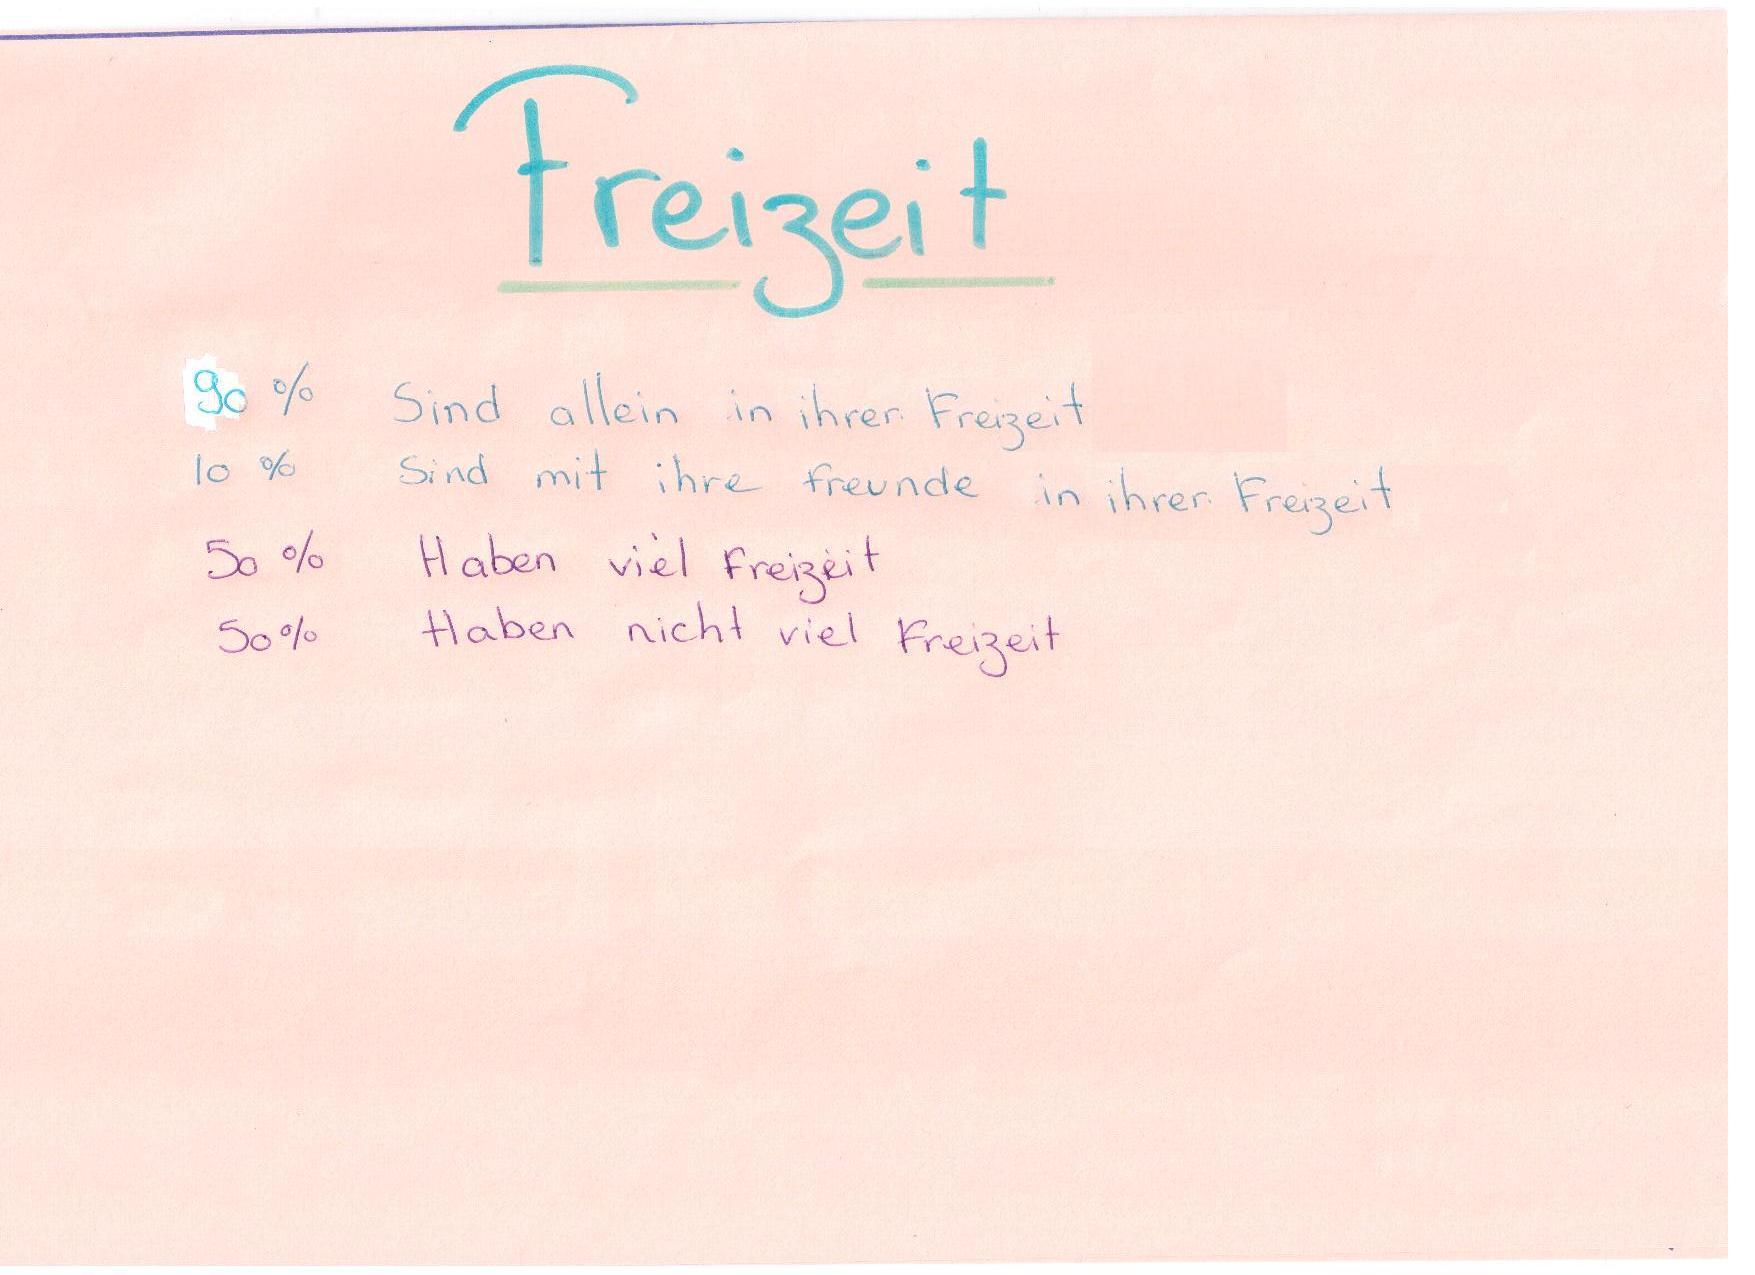 Freizeit
90 % Sind allein in ihrer Freizeit
10 % Sind mit ihre freunde in ihrer Freizeit
50 % Haben viel Freizeit
50% Haben nicht viel Freizeit